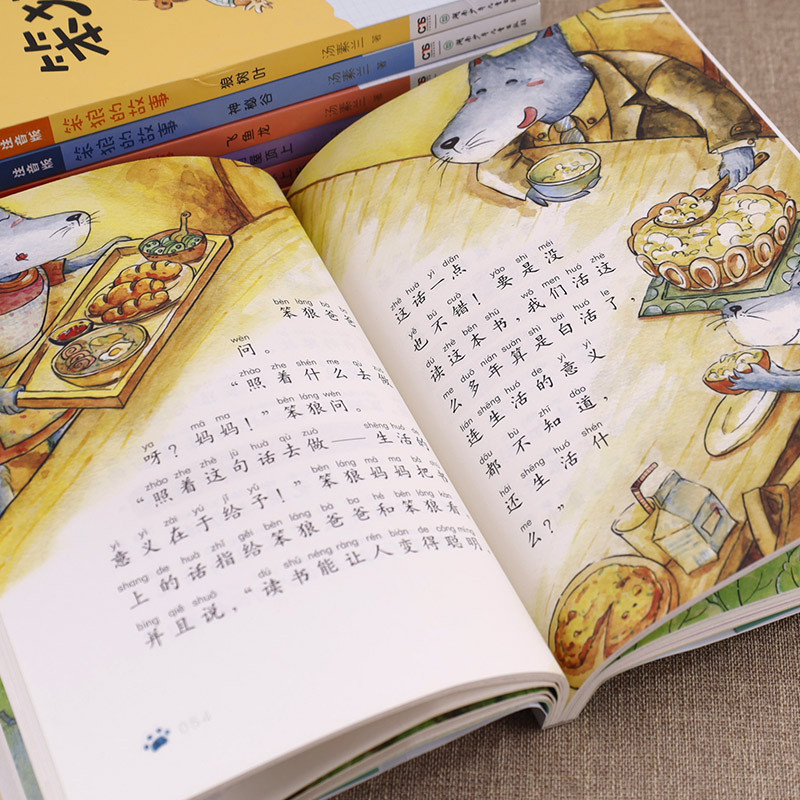 笨狼
注音版 笨狼的故事 狼树叶 汤素兰 著 湖南少年儿童出版社
注音版 笨狼的故事 神秘谷 汤素兰 著 湖南少年儿童出版社
飞鱼龙 汤素兰
屋顶上
上
bèn láng bà
笨狼爸爸
wèn
问。
zhào zhe shén me qù
“照着什么去做
ya mā ma bèn láng wèn
呀？妈妈！”笨狼问。
zhào zhe zhè jù huà qù zuò shēng huó de
“照着这句话去做——生活的
yì yì zài yú jǐ yǔ bèn láng mā ma bǎ
意义在于给予！”笨狼妈妈把书
shang de huà zhǐ gěi bèn láng bà ba hé bèn láng kàn
上的话指给笨狼爸爸和笨狼看，
bìng qiě shuō dú shū néng ràng rén biàn de cōng míng
并且说，“读书能让人变得聪明，
054
zhè huà yì diǎn
这话一点
yě bú cuò yào shi méi
也不错！要是没
dú zhè běn shū wǒ men huó zhè
读这本书，我们活这
me duō nián suàn shì bái huó le
么多年算是白活了，
lián shēng huó de yì yì
连生活的意义
dōu bù zhī dào
都不知道，
hái shēng huó shén
还生活什
me
么？”